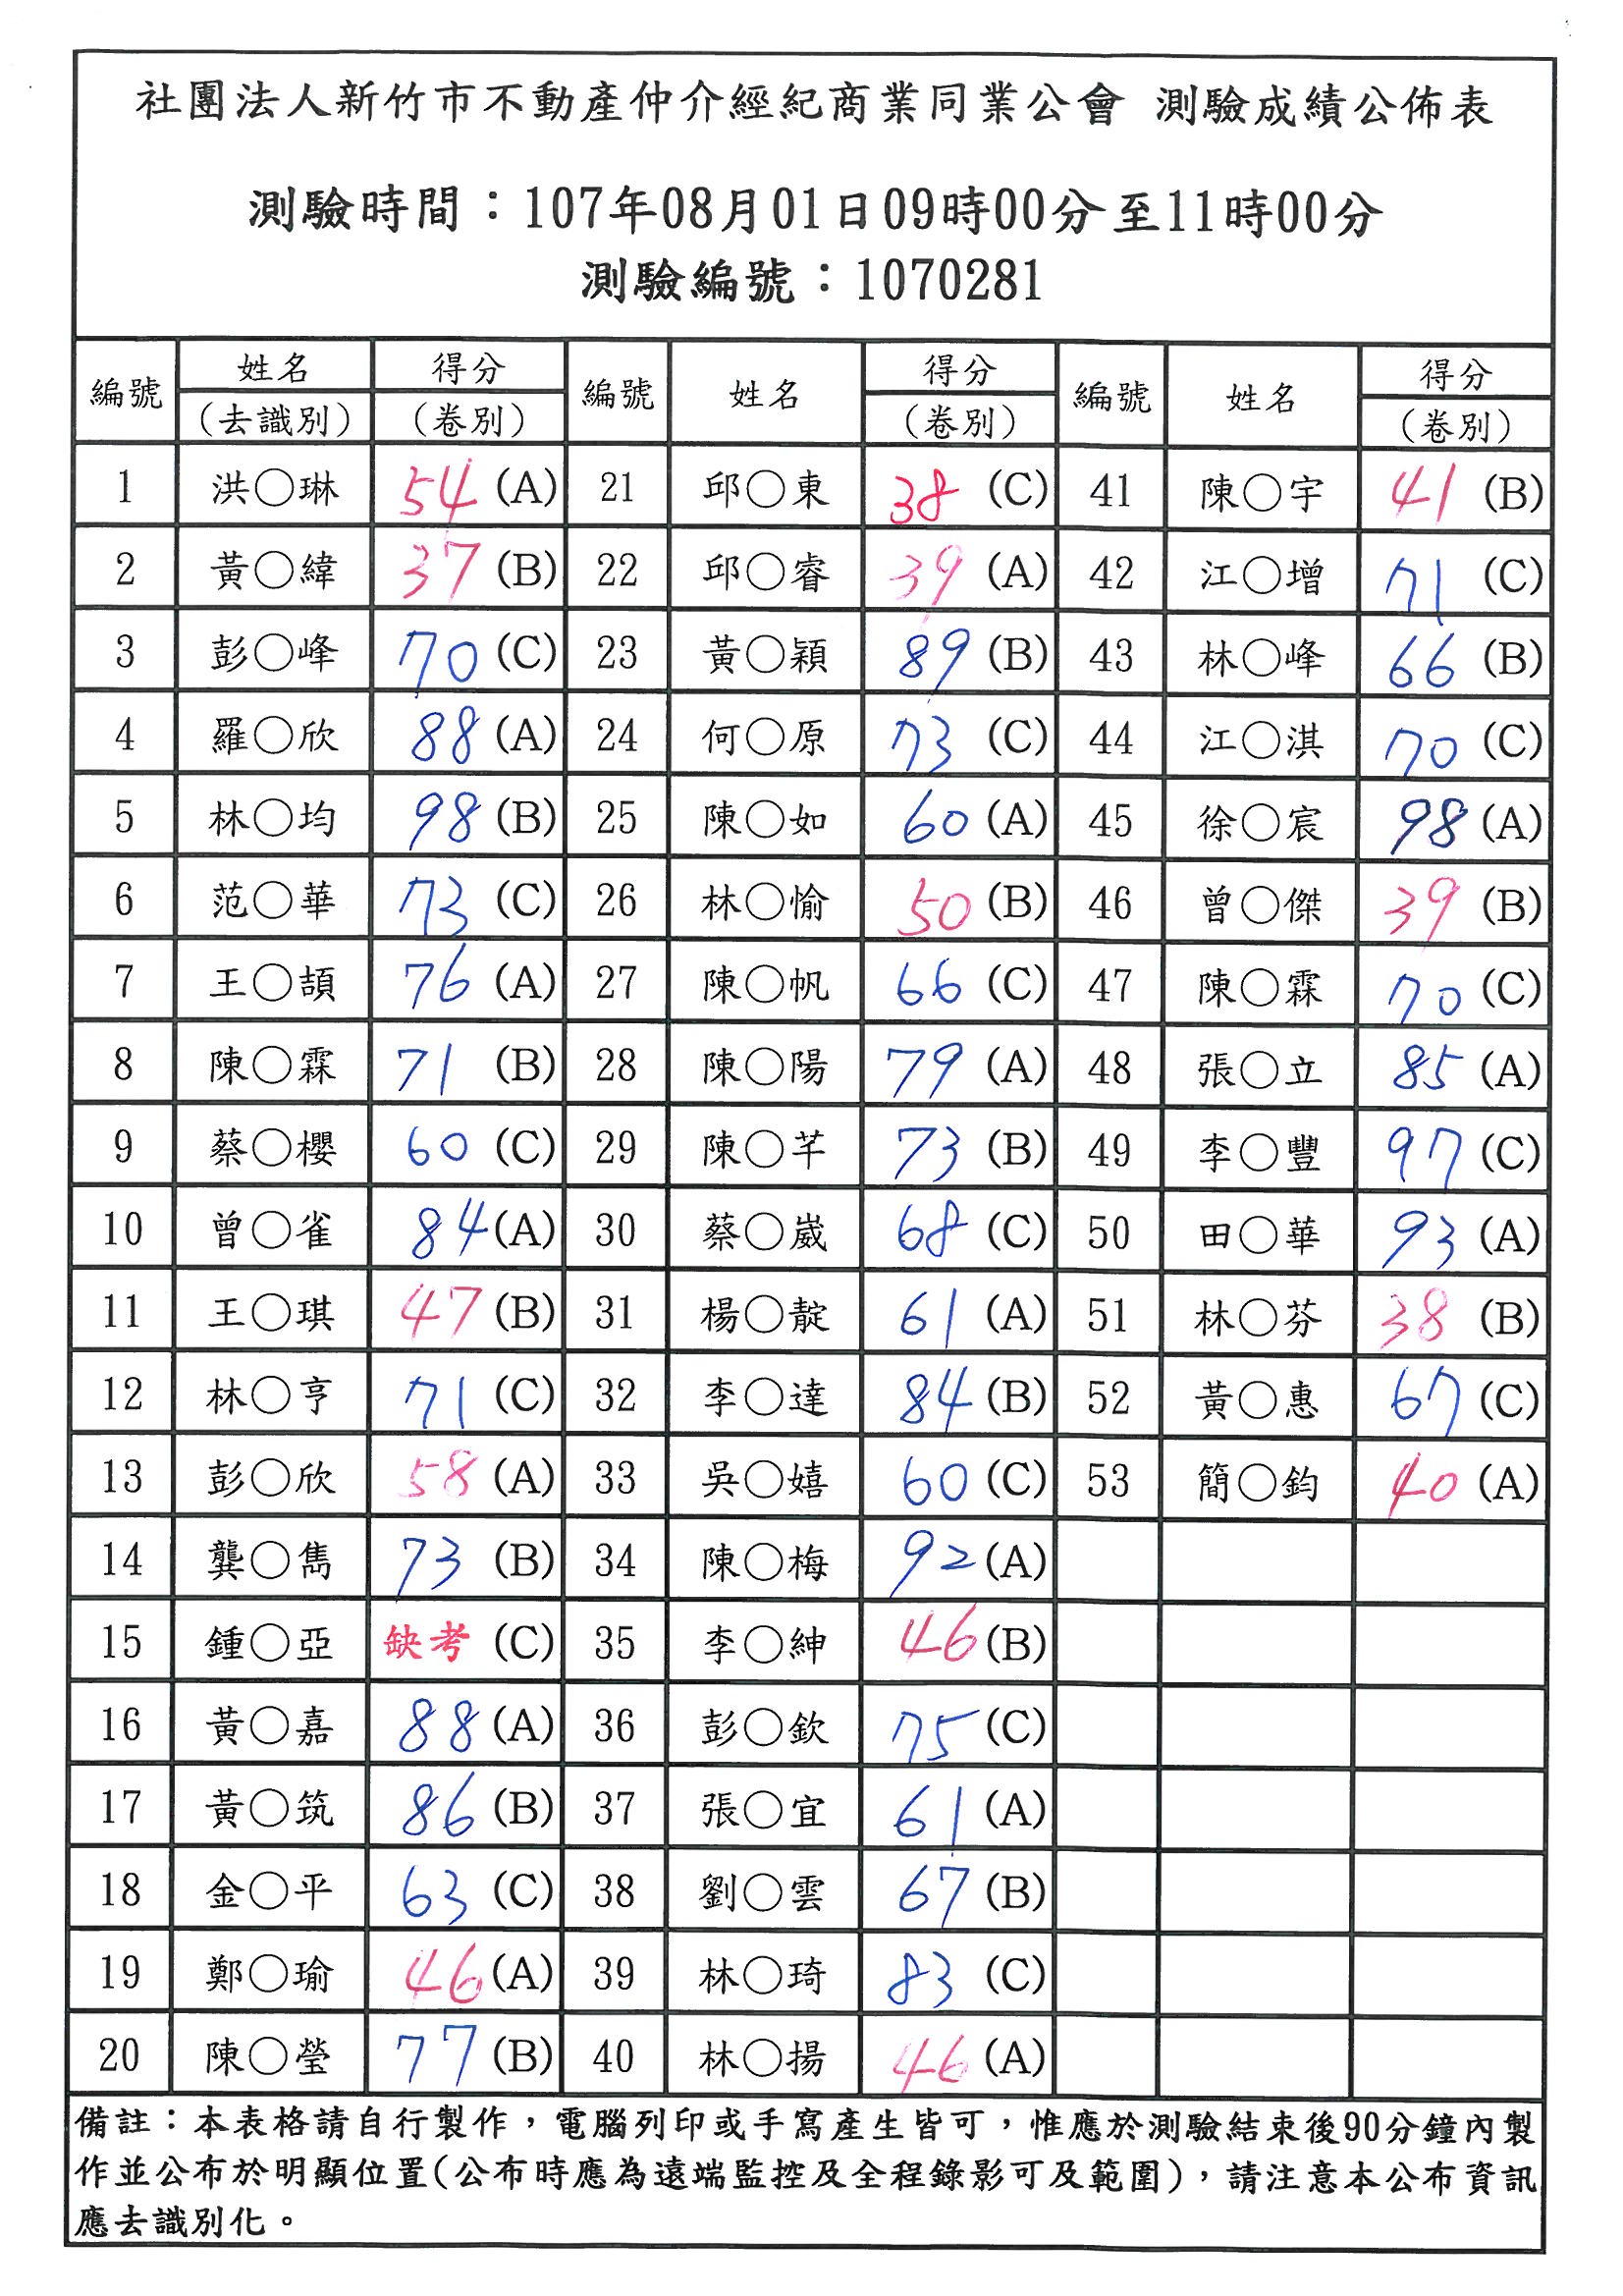 社團法人新竹市不動產仲介經紀商業同業公會 測驗成績公佈表
測驗時間：107年08月01日09時00分至11時00分
測驗編號：1070281
編號 姓名 得分 編號 姓名 得分 編號 姓名 得分
(去識別) (卷別) (卷別) (卷別)
1 洪○琳 54 (A) 21 邱○東 38 (C) 41 陳○宇 41 (B)
2 黃○緯 37 (B) 22 邱○睿 39 (A) 42 江○增 71 (C)
3 彭○峰 70 (C) 23 黃○穎 89 (B) 43 林○峰 66 (B)
4 羅○欣 88 (A) 24 何○原 73 (C) 44 江○淇 70 (C)
5 林○均 98 (B) 25 陳○如 60 (A) 45 徐○宸 98 (A)
6 范○華 73 (C) 26 林○愉 50 (B) 46 曾○傑 39 (B)
7 王○頡 76 (A) 27 陳○帆 66 (C) 47 陳○霖 70 (C)
8 陳○霖 71 (B) 28 陳○陽 79 (A) 48 張○立 85 (A)
9 蔡○櫻 60 (C) 29 陳○芊 73 (B) 49 李○豐 97 (C)
10 曾○雀 84 (A) 30 蔡○崴 68 (C) 50 田○華 93 (A)
11 王○琪 47 (B) 31 楊○靛 61 (A) 51 林○芬 38 (B)
12 林○亨 71 (C) 32 李○達 84 (B) 52 黃○惠 67 (C)
13 彭○欣 58 (A) 33 吳○嬉 60 (C) 53 簡○鈞 40 (A)
14 龔○雋 73 (B) 34 陳○梅 92 (A)
15 鍾○亞 缺考 (C) 35 李○紳 46 (B)
16 黃○嘉 88 (A) 36 彭○欽 75 (C)
17 黃○筑 86 (B) 37 張○宜 61 (A)
18 金○平 63 (C) 38 劉○雲 67 (B)
19 鄭○瑜 46 (A) 39 林○琦 83 (C)
20 陳○瑩 77 (B) 40 林○揚 46 (A)
備註：本表格請自行製作，電腦列印或手寫產生皆可，惟應於測驗結束後90分鐘內製
作並公布於明顯位置(公布時應為遠端監控及全程錄影可及範圍)，請注意本公布資訊
應去識別化。